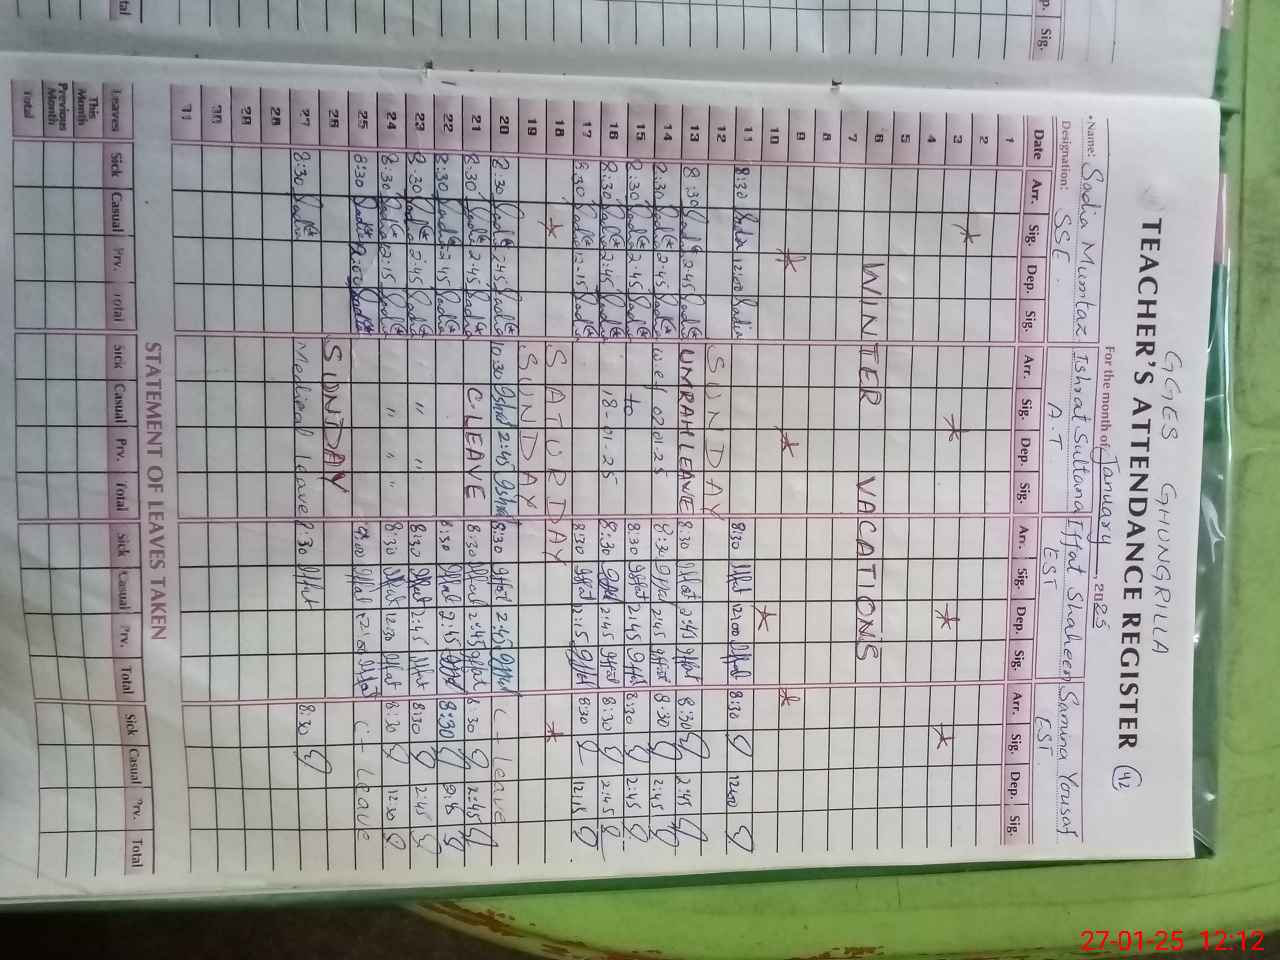 GGES GHUNGRILLA
TEACHER'S ATTENDANCE REGISTER 42
For the month of January, 2025
Name: Sadia Mumtaz Ishrat Sultana Iffat Shaheen Samina Yousaf
Designation: SSE. A.T EST EST
Date Arr. Sig. Dep. Sig. Arr. Sig. Dep. Sig. Arr. Sig. Dep. Sig. Arr. Sig. Dep. Sig.
1
2
3
4
5
6 WINTER VACATIONS
7
8
9
10
11 8:30 Sadia 12:00 Sadia 8:30 Iffat 12:00 Iffat 8:30 12:00
12 SUNDAY
13 8:30 Sadia 2:45 Sadia UMRAH LEAVE 8:30 Iffat 2:45 Iffat 8:30 2:45
14 8:30 Sadia 2:45 Sadia w.e.f 02-01-25 8:30 Iffat 2:45 Iffat 8:30 2:45
15 8:30 Sadia 2:45 Sadia to 8:30 Iffat 2:45 Iffat 8:30 2:45
16 8:30 Sadia 2:45 Sadia 18-01-25 8:30 Iffat 2:45 Iffat 8:30 2:45
17 8:30 Sadia 12:15 Sadia 8:30 Iffat 12:15 Iffat 8:30 12:15
18 SATURDAY
19 SUNDAY
20 8:30 Sadia 2:45 Sadia 10:30 Ishrat 2:45 Ishrat 8:30 Iffat 2:45 Iffat C-Leave
21 8:30 Sadia 2:45 Sadia C.LEAVE 8:30 Iffat 2:45 Iffat 8:30 2:45
22 8:30 Sadia 2:45 Sadia 8:30 Iffat 2:45 Iffat 8:30
23 8:30 Sadia 2:45 Sadia " " 8:30 Iffat 2:45 Iffat 8:30 2:45
24 8:30 Sadia 12:15 Sadia " " " 8:30 Iffat 12:30 Iffat 8:30 12:30
25 8:30 Sadia Sadia 9:00 Iffat Iffat C-Leave
26 SUNDAY
27 8:30 Sadia Medical leave 8:30 Iffat 8:30
28
29
30
31
STATEMENT OF LEAVES TAKEN
Leaves Sick Casual Prv. Total Sick Casual Prv. Total Sick Casual Prv. Total Sick Casual Prv. Total
This Month
Previous Month
Total
Sig.
27-01-25 12:12